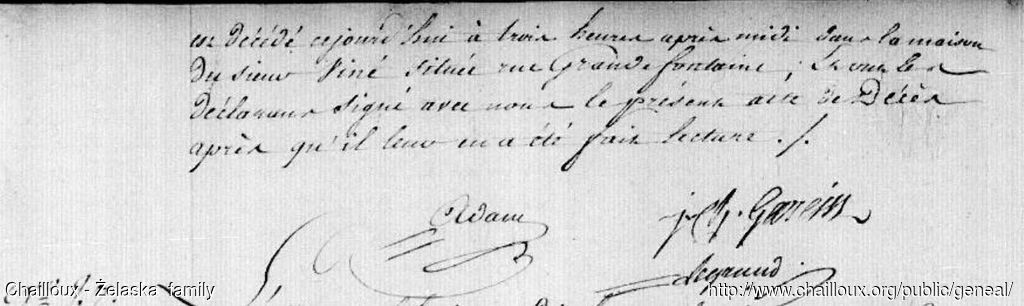 est Décédé cejourd'hui à trois heures après midi dans la maison
Du sieur Siné située rue Grande fontaine ; Et ont les
déclarans signé avec nous le présent acte de Décès
après qu'il leur en a été fait lecture ./.
Adam
j. Ch. Garein
Legrand
Chailloux - Żelaska family
http://www.chailloux.org/public/geneal/